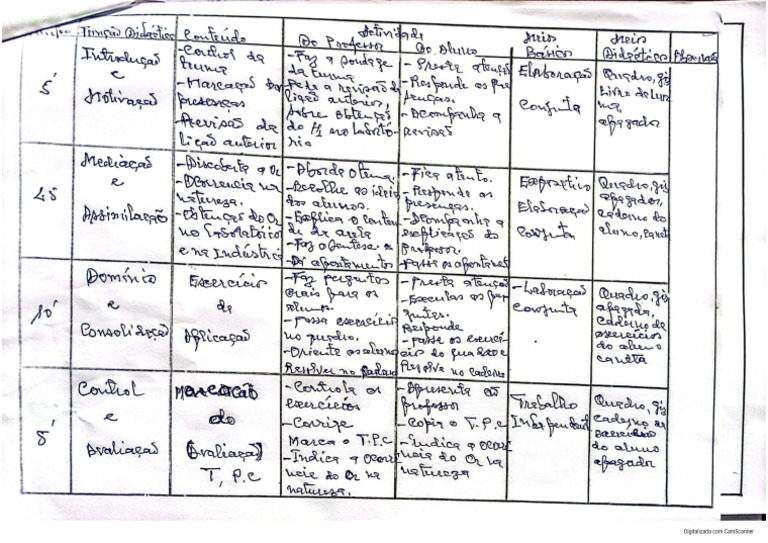 Tempo Função Didáctica Conteúdo Actividade Meis Meis Observação
Do Professor Do Aluno Básico Didáctico
5'
Introdução
e
Motivação
-Control da
turma
-Marcação das
presenças
-Revisão da
lição anterior
-Faz a sondage
da turma
-pede a revisão da
lição anterior,
sobre obtenção
do H₂ no laborató-
rio
-Presta atenção
-Responde as pre-
senças.
-Acompanha a
revisão
Elaboração
Conjunta
Quadro, giz
Livro da tur-
ma,
apagador
25
Mediação
e
Assimilação
-Discoberta a O₂
-Ocorrencia na
natureza.
-Obtenção do O₂
no Laboratório
e na Indústria
-Aborda o tema.
-Recolhe as ideia
dos alunos.
-Explica o conteu-
do da aula
-Faz o sentese e
Dá apontamento
-Fica atento.
-Responde as
presenças.
-Acompanha a
explicação do
professor.
-passa os apontament
Expositivo
Elaboração
Conjunta
Quadro, giz
apagador,
caderno do
aluno, canet
10'
Domínio
e
Consolidação
Exercício
de
Aplicação
-Faz perguntas
orais para os
alunos.
-passa exercício
no quadro.
-Oriente os alunos
Resolver no quadro
-Presta atenção
-Escutas as per
guntas.
Responde
-passe os exercí-
cio do quadro e
Resolve no caderno
-Elaboração
Conjunta
Quadro, giz
apagador,
caderno de
exercícios
do aluno
caneta
5'
Control
e
Avaliação
Marcação
do
(Avaliação)
T.P.C
-Controla os
exercícios
-Corrize
Marca o T.P.C
-Indica a ocorr
ncie do O₂ na
natureza.
-Apresenta ao
professor
-Copia o T.P.C
-Indica a ocorr
ncie do O₂ na
natureza
Trabalho
Independent
Quadro, giz
caderno de
exercício
do aluno
apagador
Digitalizada com CamScanner